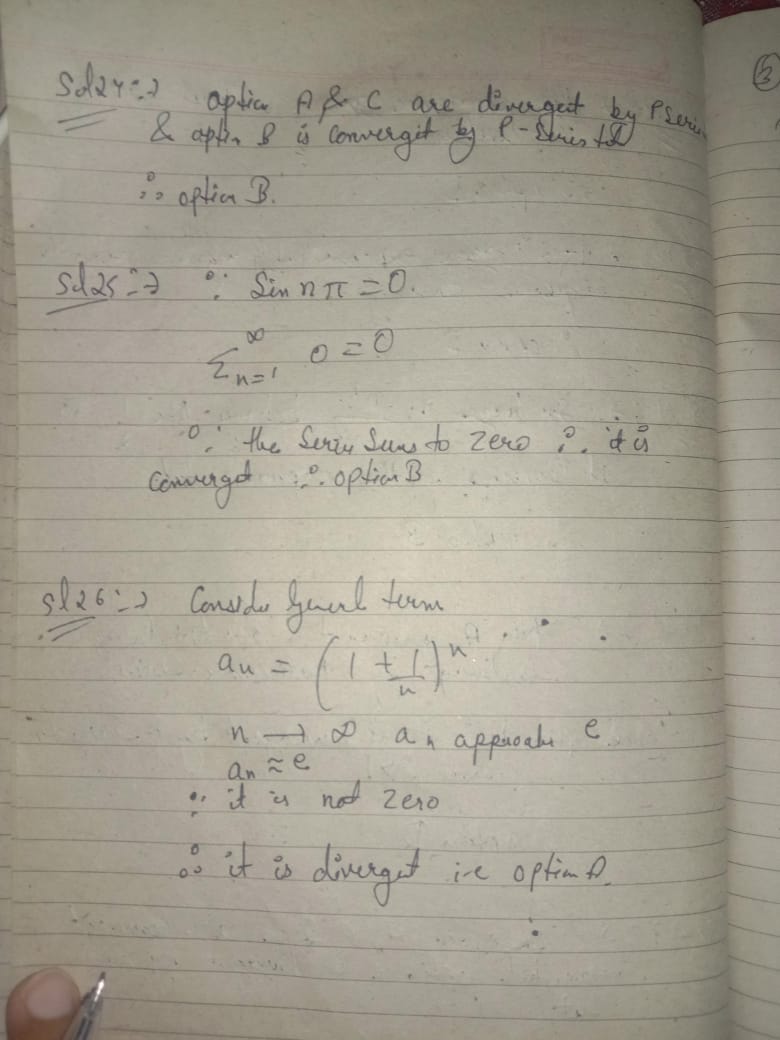 Sol24:→ option A & C are divergent by P Serie
& option B is convergent by P-Series tst
∴ option B.
Sol25:→ ∵ Sin nπ = 0.
∑_{n=1}^{∞} 0 = 0
∵ the Series Sums to Zero ∴ it is
Convergent ∴ option B
Sol26:→ Consider General term
a_n = (1 + 1/n)^n
n → ∞ a_n approache e
a_n ≈ e
∵ it is not Zero
∴ it is divergent i-e option A.
3